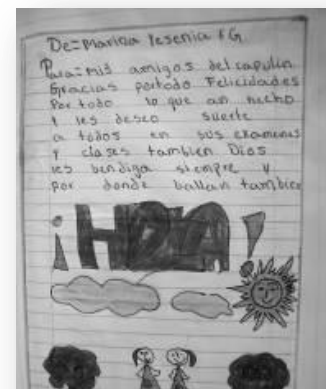 De=Marina Yesenia F.G
Para=mis amigos del capulin
Gracias portodo Felicidades
Por todo lo que an hecho
Y les deseo suerte
a todos en sus examenes
Y clases tambien Dios
les bendiga siempre y
por donde ballan tambien
¡HOLA!